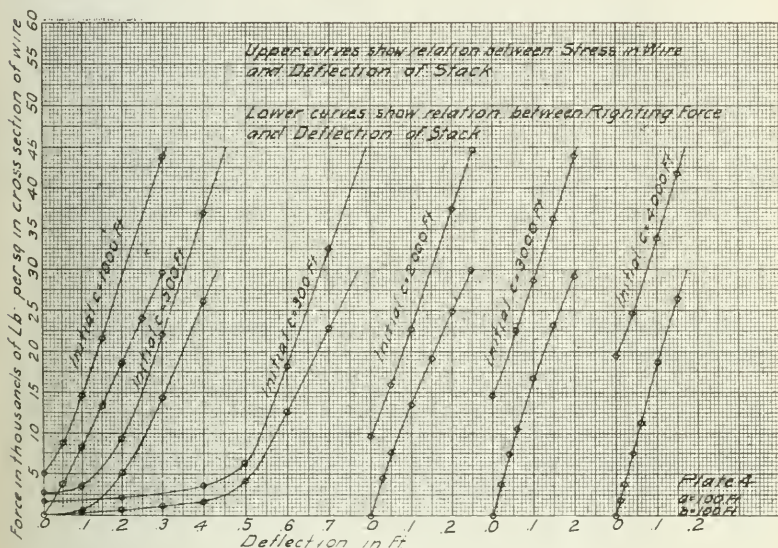 Upper curves show relation between Stress in Wire
and Deflection of Stack
Lower curves show relation between Righting Force
and Deflection of Stack
Force in thousands of Lb. per sq in cross section of wire
60
55
50
45
40
35
30
25
20
15
10
5
Initial c=1000 Ft
Initial c=500 Ft
Initial c=300 Ft
Initial c=2000 Ft
Initial c=3000 Ft
Initial c=4000 Ft
45
30
Plate 4
a=100 Ft
b=100 Ft
.0 .1 .2 .3 .4 .5 .6 .7 .0 .1 .2 .0 .1 .2 .0 .1 .2
Deflection in Ft